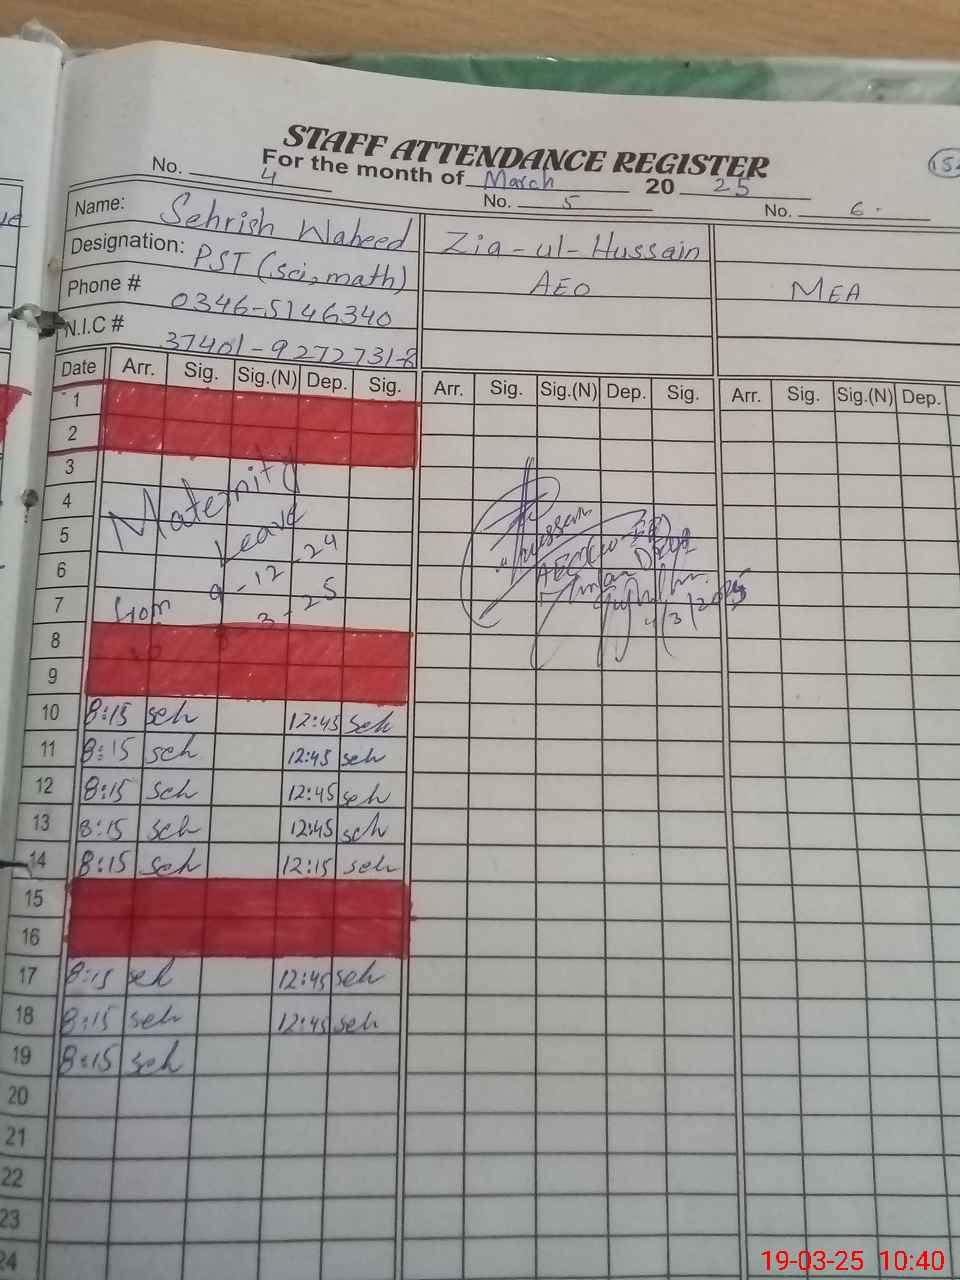 STAFF ATTENDANCE REGISTER
For the month of March 20 25
No. 4 No. 5 No. 6
Name: Sehrish Waheed Zia-ul-Hussain
Designation: PST (sci, math) AEO MEA
Phone # 0346-5146340
N.I.C # 37401-9272731-8
Date Arr. Sig. Sig.(N) Dep. Sig. Arr. Sig. Sig.(N) Dep. Sig. Arr. Sig. Sig.(N) Dep.
1
2
3
4 Maternity
5 Leave
6 9-12-24
7 from 3-25
8 to
9
10 8:15 seh 12:45 seh
11 8:15 seh 12:45 seh
12 8:15 seh 12:45 seh
13 8:15 seh 12:45 seh
14 8:15 seh 12:15 seh
15
16
17 8:15 seh 12:45 seh
18 8:15 seh 12:45 seh
19 8:15 seh
20
21
22
23
24
19-03-25 10:40